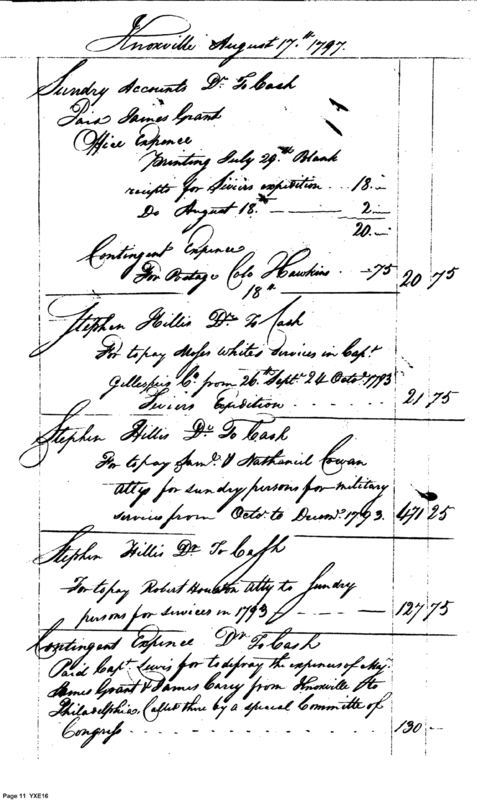 Knoxville August 17.th 1797.
Sundry Accounts Dr. To Cash
Paid James Grant
Office Expence
Printing July 29.th Blank
receipts for Seviers expedition . . . 18 . —
Do August 18.th — — — 2 . —
20 . —
Contingent Expence
For Postage Colo Hawkins . — 75 20 75
18th
Stephen Hillis Dr. To Cash
For to pay Moses Whites Services in Capt.
Gillespies Co. from 26.th Sept.r 24 Octo.r 1793
Seviers Expedition . . . . . . . 21 75
Stephen Hillis Dr. To Cash
For to pay Saml. & Nathaniel Cowan
Attys for sundry persons for military
services from Octo. to Decem.r 1793. 471 25
Stephen Hillis Dr. To Cash
For to pay Robert Houston Atty to Sundry
persons for services in 1793 — — — 127 75
Contingent Expence Dr. To Cash
Paid Capt. Lewis for to defray the expences of Maj.
James Grant & James Carey from Knoxville to
Philadelphia, Called there by a special Committe of
Congress . . . . . . . 130 —
Page 11 YXE16